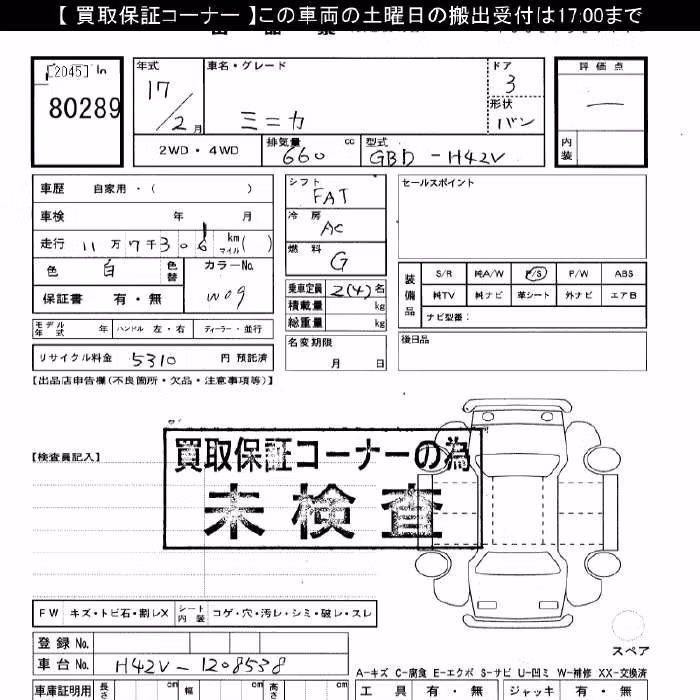 【 買取保証コーナー 】この車両の土曜日の搬出受付は17:00まで
[2045] In
80289
年式
17/2月
車名・グレード
ミニカ
ドア
3
形状
バン
評価点
―
内装
2WD・4WD
排気量 660 cc
型式 GBD-H42V
車歴 自家用・( )
車検 年 月
走行 11万7千306 km マイル ( )
色 白 色替
カラーNo. W09
保証書 有・無
シフト FAT
冷房 AC
燃料 G
乗車定員 2(4)名
積載量 kg
総重量 kg
セールスポイント
装備品
S/R 純A/W P/S P/W ABS
純TV 純ナビ 革シート 外ナビ エアB
ナビ型番:
モデル年式 年 ハンドル 左・右 ディーラー・並行
名変期限 月 日
後日品
リサイクル料金 5310 円 預託済
【出品店申告欄(不良箇所・欠品・注意事項等)】
【検査員記入】
買取保証コーナーの為
未検査
FW キズ・トビ石・割レX シート内装 コゲ・穴・汚レ・シミ・破レ・スレ
スペア
登録No.
車台No. H42V-1208538
A-キズ C-腐食 E-エクボ S-サビ U-凹ミ W-補修 XX-交換済
車庫証明用 長さ cm 幅 cm 高さ cm
工具 有・無 ジャッキ 有・無